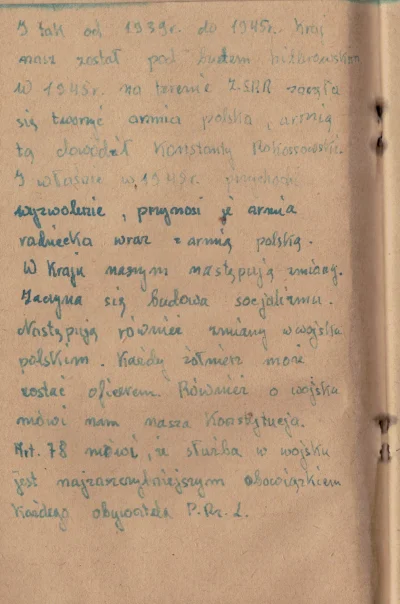 I tak od 1939r. do 1945r. kraj
nasz został pod butem hitlerowskim
W 1943r. na terenie ZSRR zaczęła
się tworzyć armia polska, armią
tą dowodził Konstanty Rokossowski.
I właśnie w 1945r. przychodzi
wyzwolenie, przynosi je armia
radziecka wraz z armią polską.
W Kraju naszym następują zmiany.
Zaczyna się budowa socjalizmu.
Następują również zmiany w wojsku
polskim. Każdy żołnierz może
zostać oficerem. Również o wojsku
mówi nam nasza Konstytucja.
Art. 78 mówi, że służba w wojsku
jest najzaszczytniejszym obowiązkiem
każdego obywatela P.Rz.L.